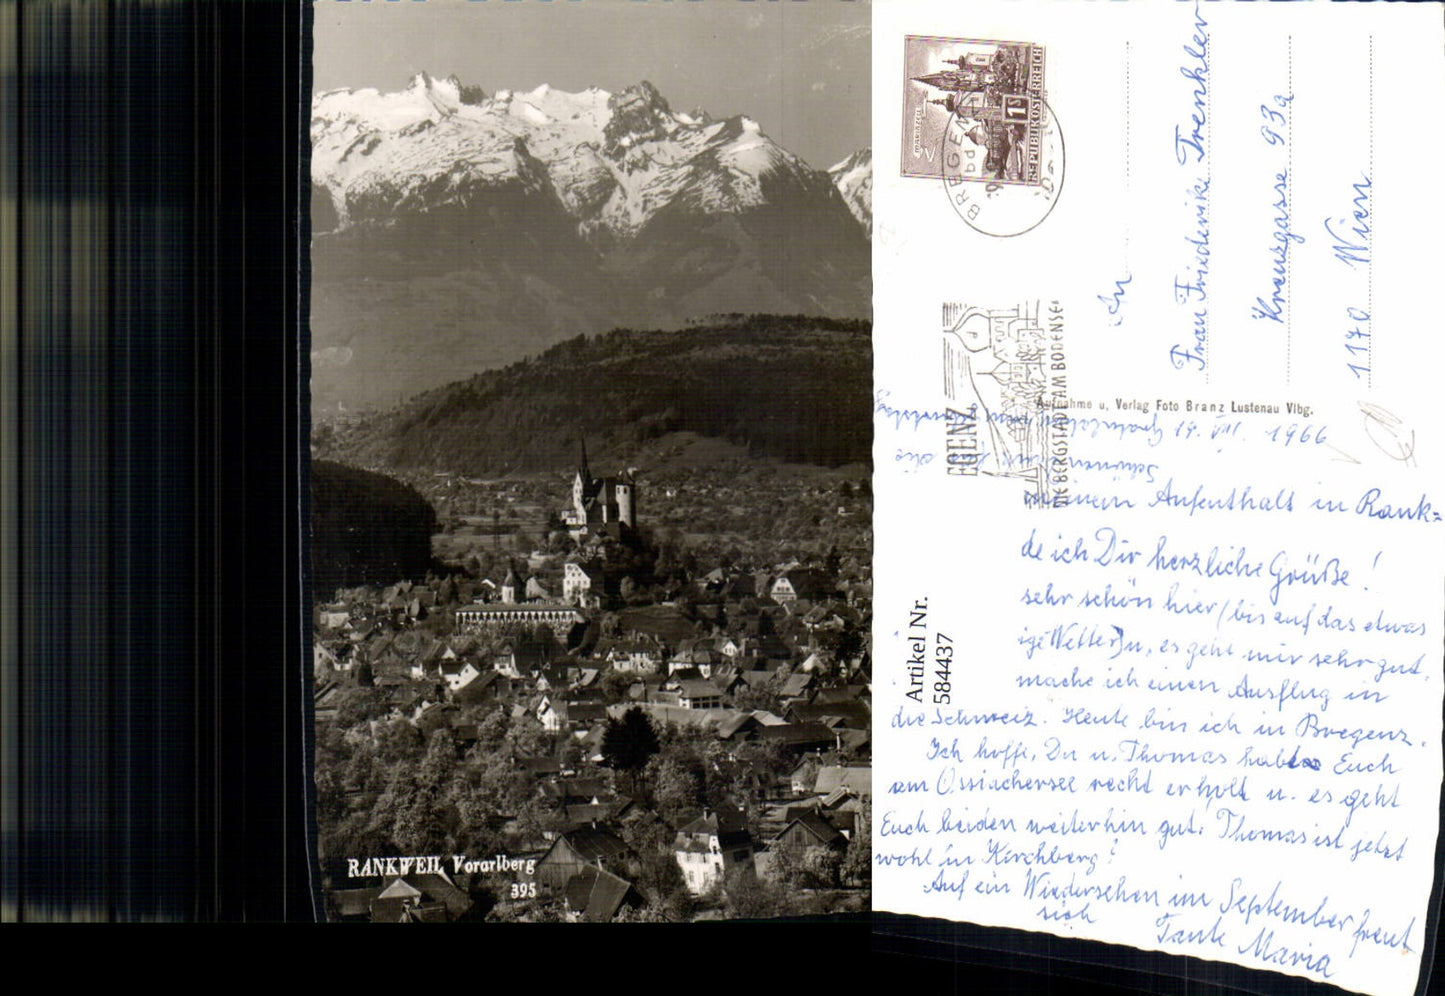 RANKWEIL Vorarlberg
395
REPUBLIK ÖSTERREICH
1 S
MARIAZELL
BREGE
bd
EGENZ
DIE BERGSTADT AM BODENSE
An
Frau Friederike Trenkler
Kreuzgasse 93a
1170 Wien
Aufnahme u. Verlag Foto Branz Lustenau Vlbg.
Artikel Nr.
584437
19. VIII. 1966
meinem Aufenthalt in Rank-
de ich Dir herzliche Grüße!
sehr schön hier (bis auf das etwas
ige Wetter) u. es geht mir sehr gut.
mache ich einen Ausflug in
die Schweiz. Heute bin ich in Bregenz.
Ich hoffe, Du u. Thomas habt Euch
am Ossiachersee recht erholt u. es geht
Euch beiden weiterhin gut. Thomas ist jetzt
wohl in Kirchberg?
Auf ein Wiedersehen im September freut
sich
Tante Maria